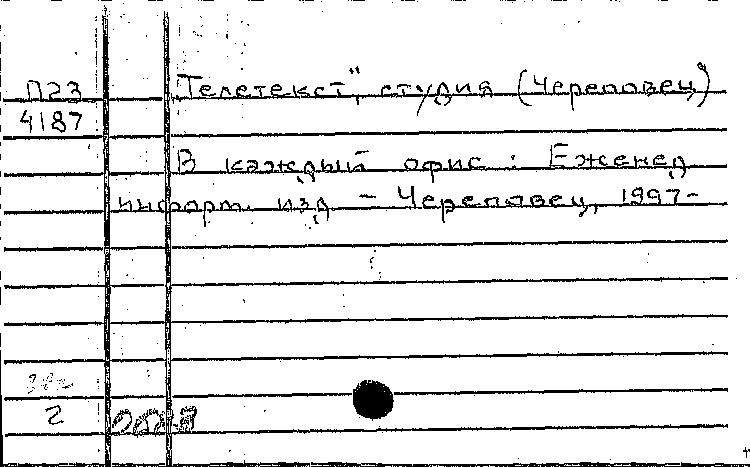 П23
4187
Телетекст", студия (Череповец)
В каждый офис : Еженед
информ. изд – Череповец, 1997-
2